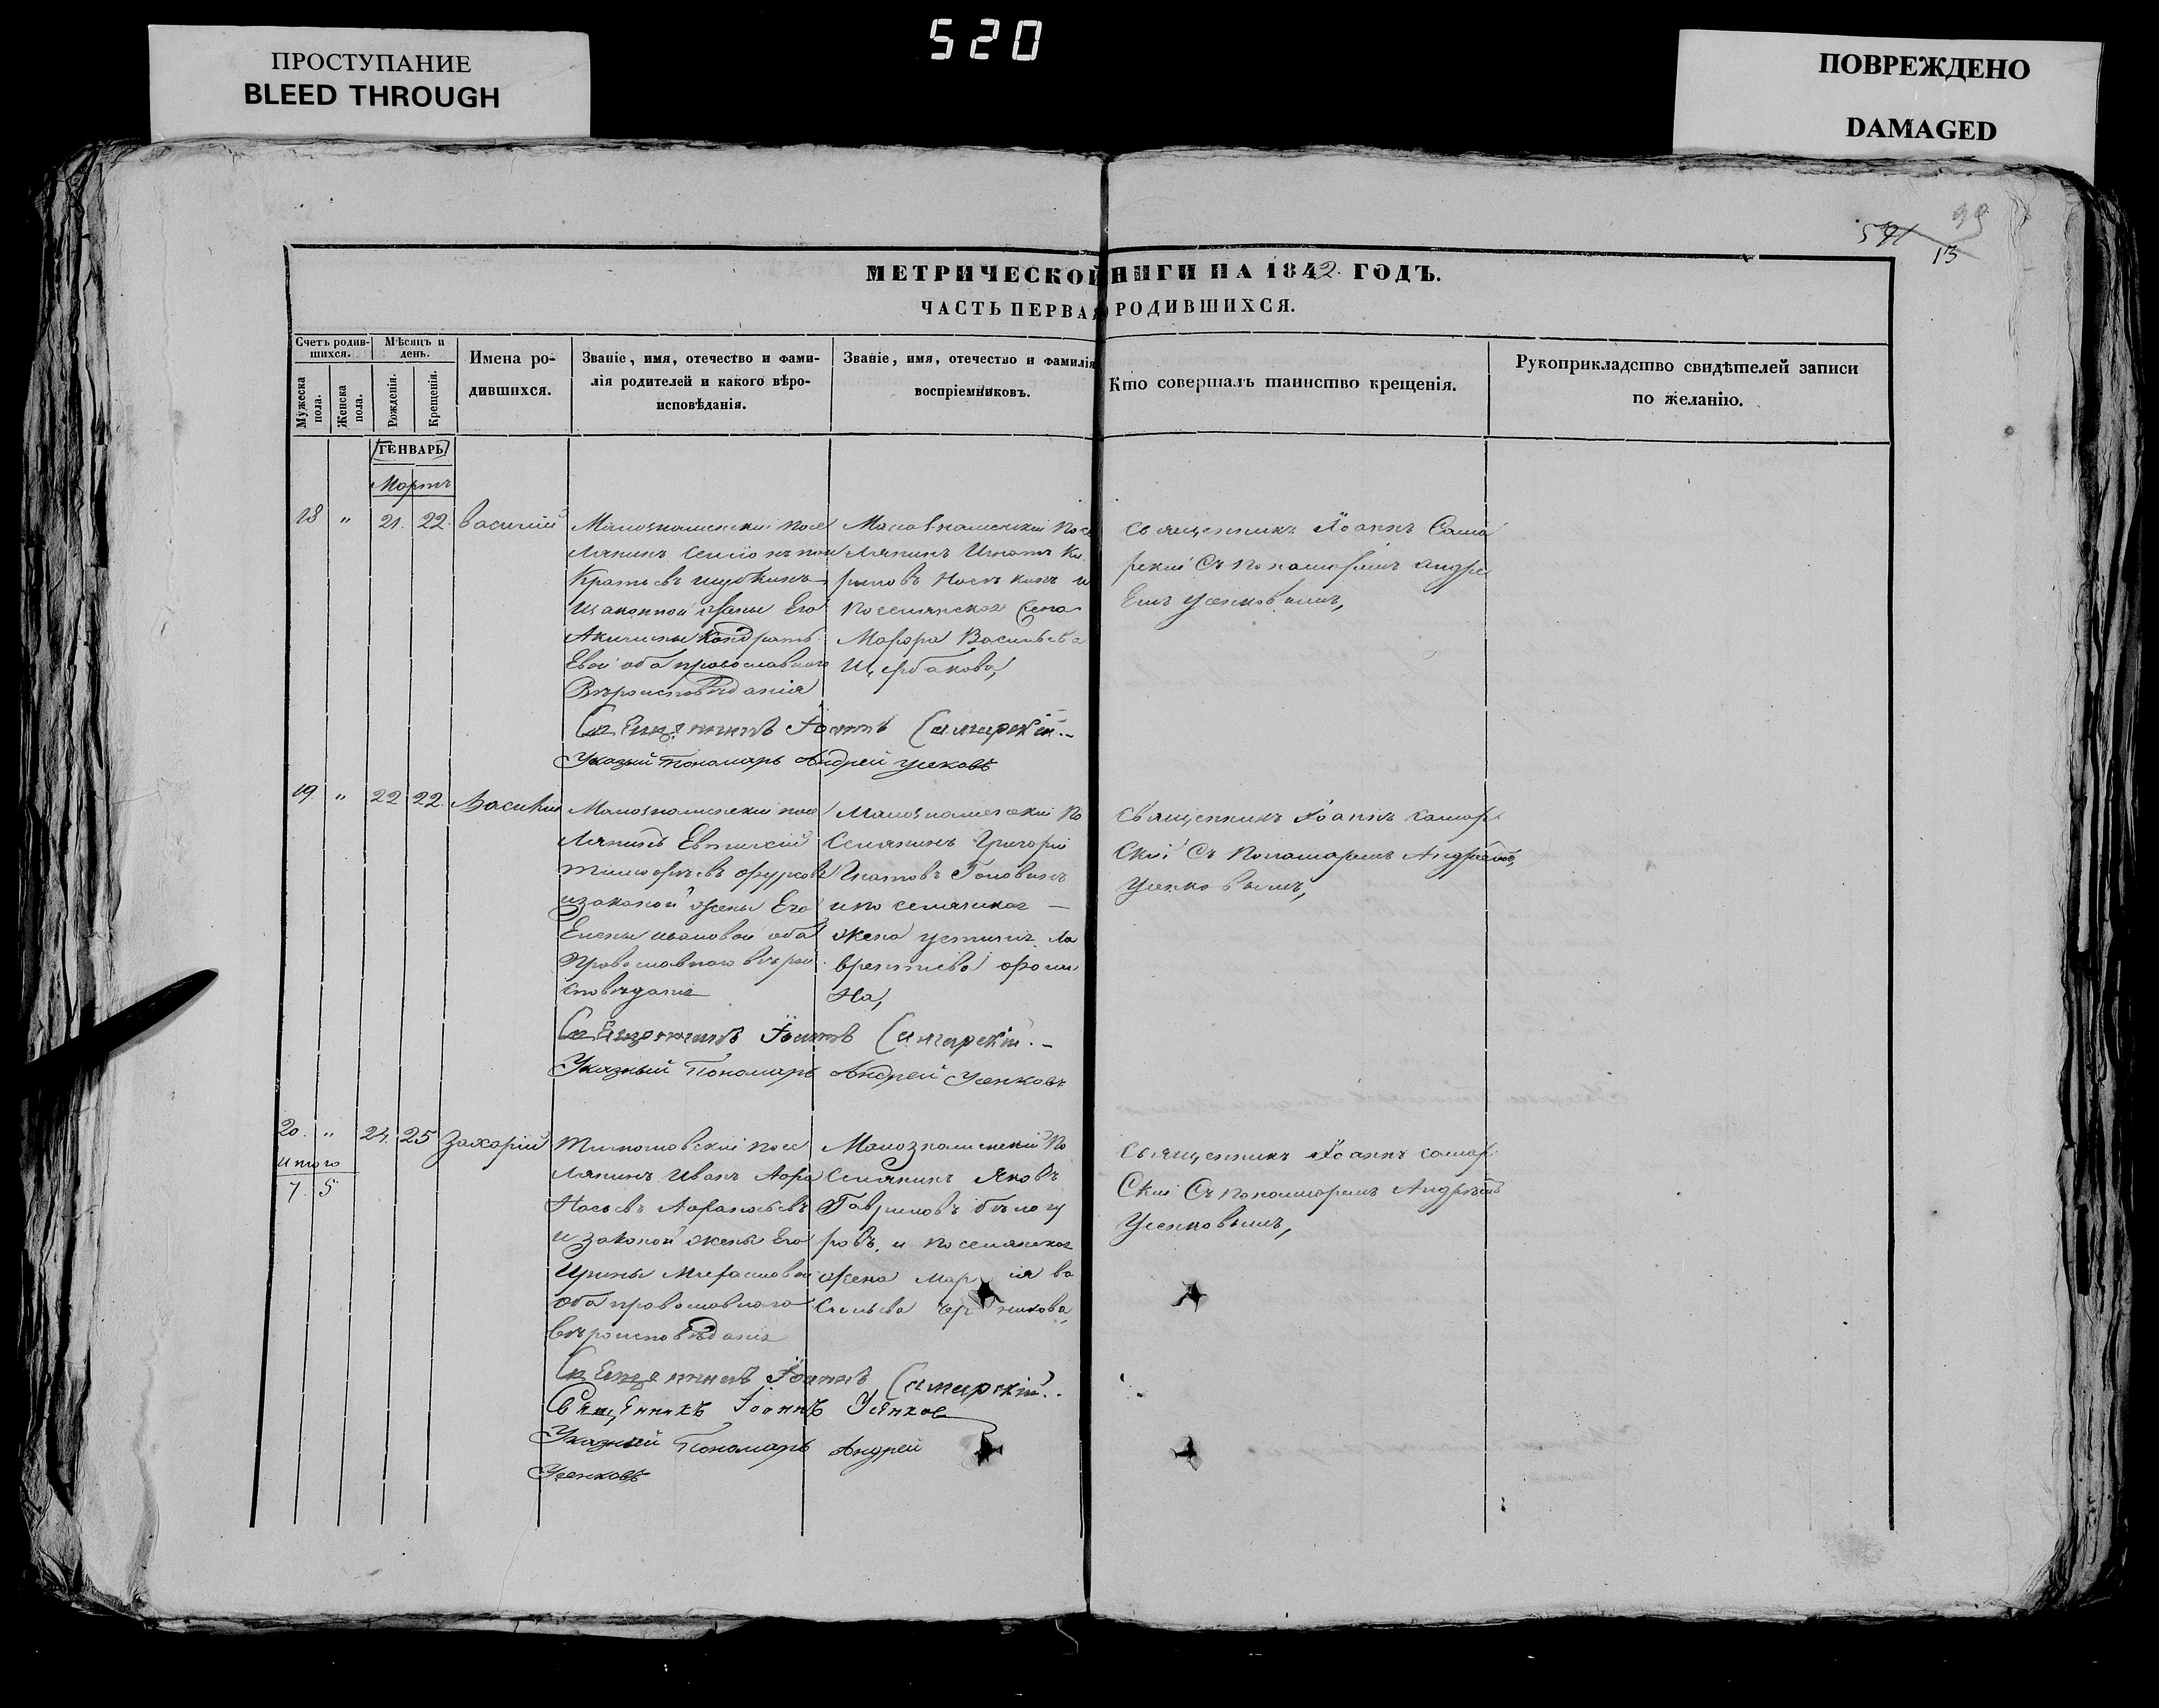 520
ПРОСТУПАНИЕ
BLEED THROUGH
ПОВРЕЖДЕНО
DAMAGED
93
591
13
МЕТРИЧЕСКОЙ НИГИ НА 1842 ГОДЪ.
ЧАСТЬ ПЕРВАЯ РОДИВШИХСЯ.
Счетъ родив-
шихся.
Мужеска пола.
Женска пола.
Мѣсяцъ и
день.
Рожденія.
Крещенія.
Имена ро-
дившихся.
Званіе, имя, отечество и фами-
лія родителей и какого вѣро-
исповѣданія.
Званіе, имя, отечество и фамилія
воспріемниковъ.
Кто совершалъ таинство крещенія.
Рукоприкладство свидѣтелей записи
по желанію.
ГЕНВАРЬ
Мартъ
18 " 21. 22. Василий
Малознаменский посе
лянинъ
Кратьевъ
изаконной жены Его
Акилины Кондрать
Евой оба православнаго
Вѣроисповѣданія
Малознаменский Посе
лянинъ Игнатъ Ки
риловъ и
поселянская
Марфа Васильева
Щербакова,
Священникъ Іоаннъ Сама
рский Съ пономаремъ андре
Емъ Усенковымъ,
Священникъ Іоаннъ Самарскій.
Указный Пономарь Андрей Усенковъ
19 " 22 22. Василий
Малознаменский посе
лянинъ Евтихий
Тимофеевъ Фурсовъ
изаконой жены Его
Елены ивановой оба
Православного вѣрои
сповѣданія
Малознаменский По
Селянинъ Григорий
Игнатовъ Головинъ
ипоселянская
жена Устиния Ла
врентиева
на,
Священникъ Іоаннъ самар
Ский Съ Пономаремъ Андреемъ
Усенковымъ,
Священникъ Іоаннъ Самарскій.
Указный Пономарь Андрей Усенковъ
20. " 24. 25 Захарий
Итого
7. 5
посе
лянинъ Иванъ Афа
Насьевъ Афанасьевъ
и законой жены Его
Ирины
Оба православного
Вѣроисповѣдания
Малознаменский По
Селянинъ Яковъ
Гавриловъ бѣлогу
ровъ, и поселянская
жена Мар ия Ва
Сильева
Священникъ Іоаннъ самар
Ский Съ пономаремъ Андреемъ
Усенковымъ,
Священникъ Іоаннъ Самарскій.
Священникъ Іоаннъ Усенков
Указный Пономарь Андрей
Усенковъ